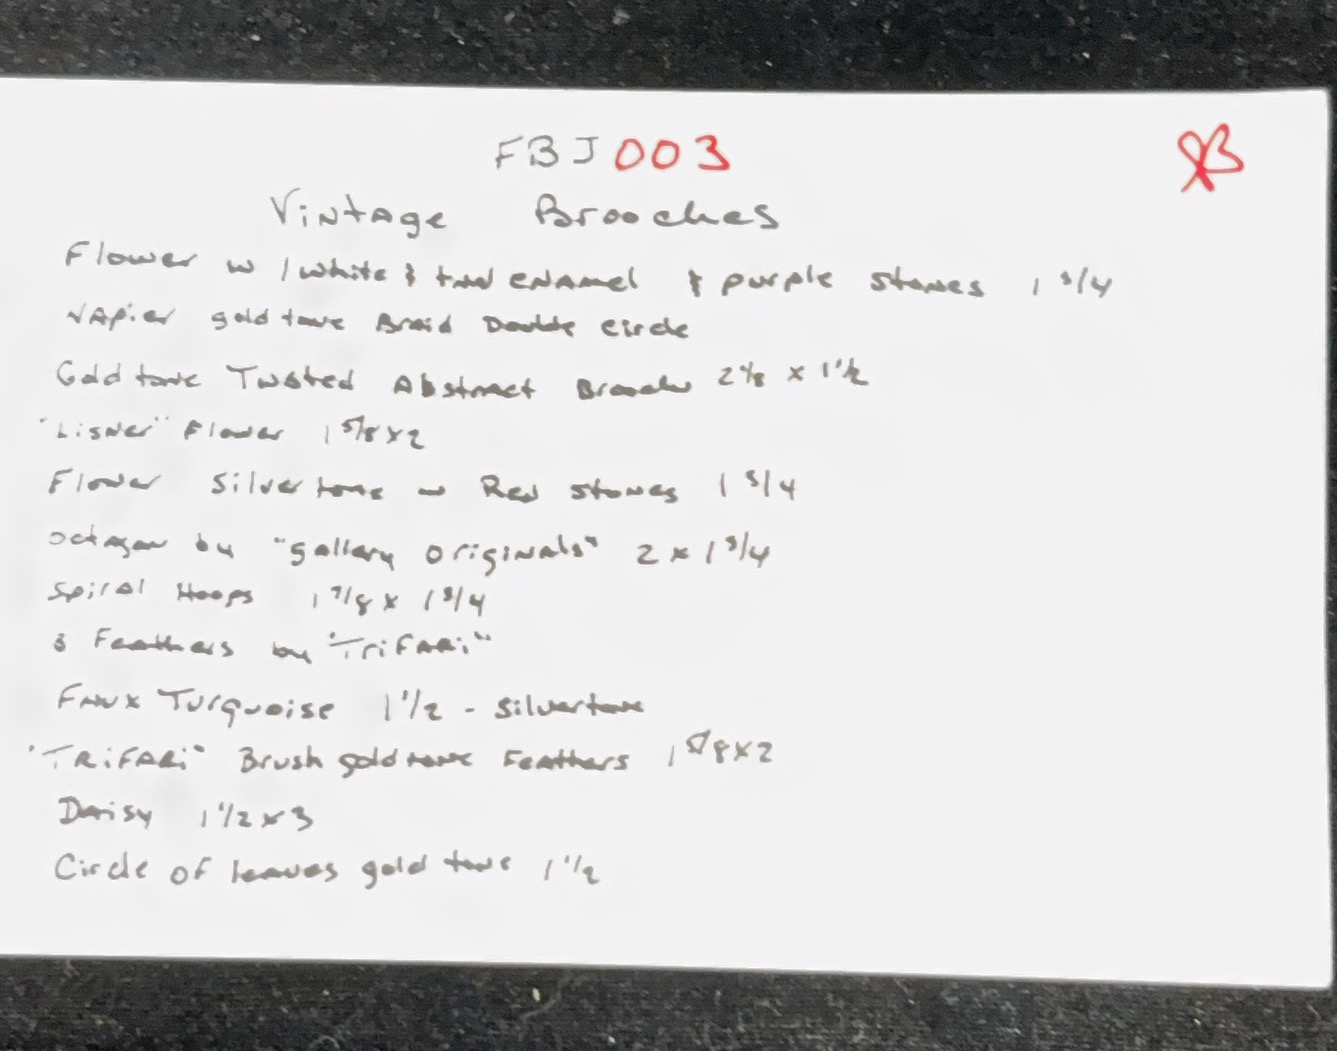 FBJ003
Vintage Brooches
Flower w/white & tan enamel & purple stones 1 3/4
Napier gold tone Braid Double circle
Gold tone Twisted Abstract Brooch x 1 1/2
"Lisner" Flower 1 5/8 x 2
Flower Silvertone w Red stones 1 3/4
octagon by "gallery originals" 2 x 1 3/4
Spiral Hoops 1 7/8 x 1 3/4
3 Feathers by "Trifari"
Faux Turquoise 1 1/2 - silvertone
"Trifari" Brush gold tone Feathers 1 5/8 x 2
Daisy 1 1/2 x 3
Circle of leaves gold tone 1 1/2